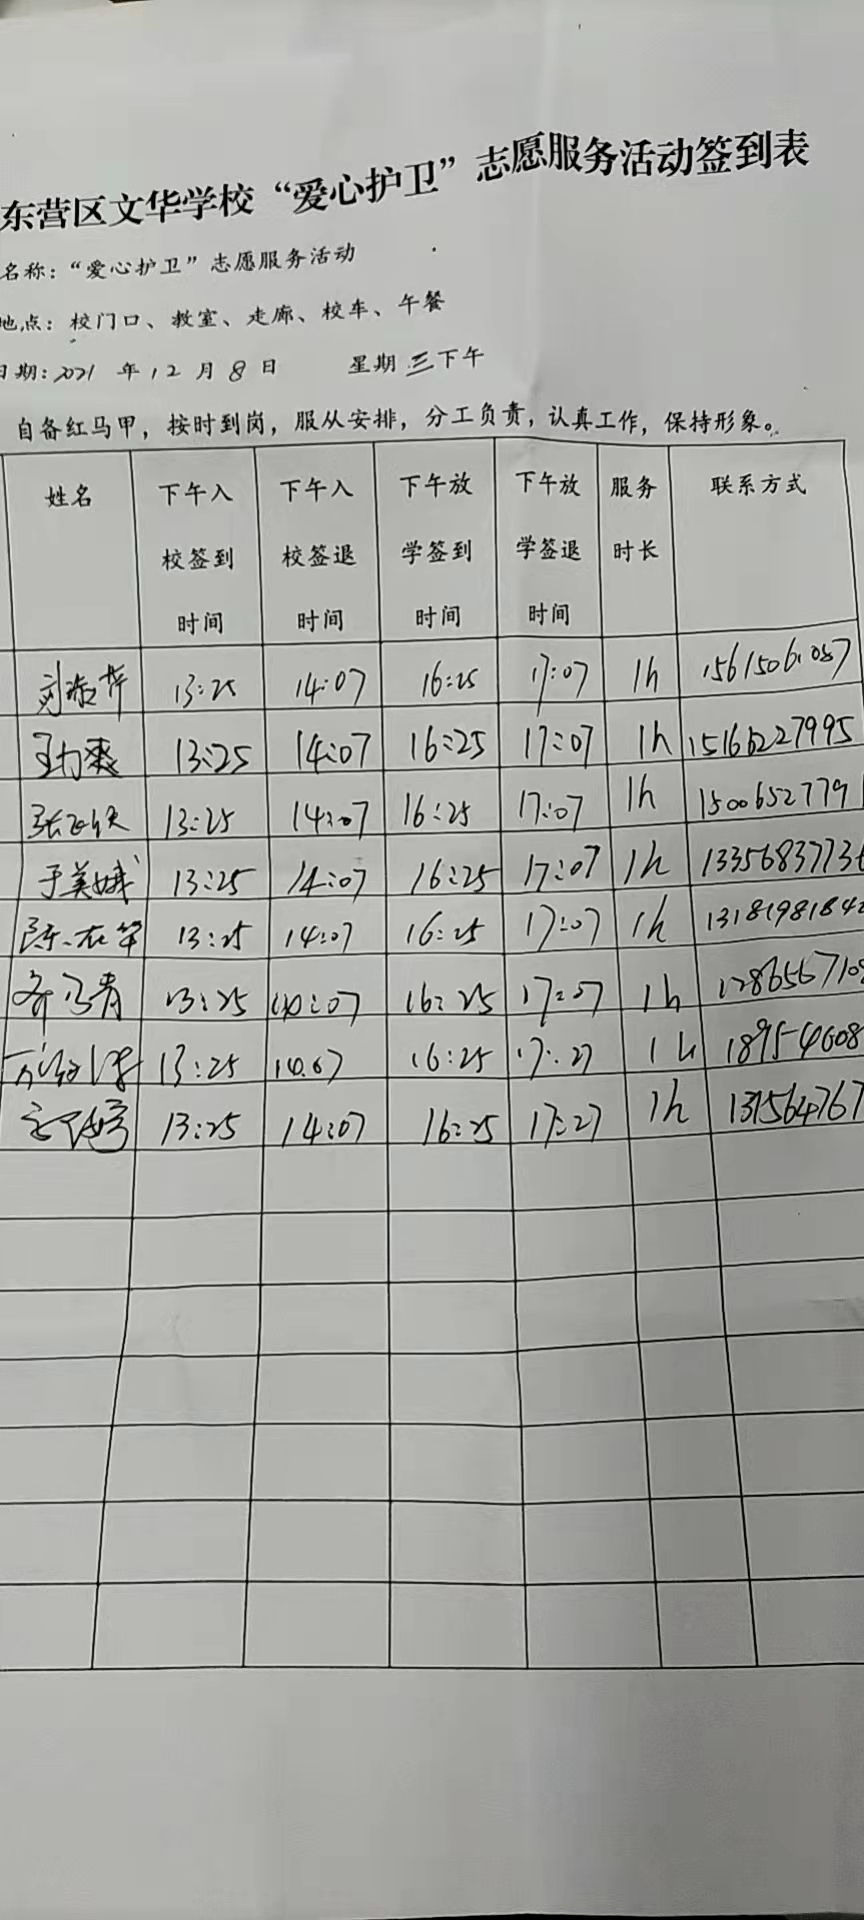 东营区文华学校“爱心护卫”志愿服务活动签到表
名称：“爱心护卫”志愿服务活动
地点：校门口、教室、走廊、校车、午餐
日期：2021 年 12 月 8 日 星期 三下午
自备红马甲，按时到岗，服从安排，分工负责，认真工作，保持形象。
姓名 下午入校签到时间 下午入校签退时间 下午放学签到时间 下午放学签退时间 服务时长 联系方式
13:25 14:07 16:25 17:07 1h 15615061057
13:25 14:07 16:25 17:07 1h 15166227995
13:25 14:07 16:25 17:07 1h 1500652779
于美娥 13:25 14:07 16:25 17:07 1h 1335683773
13:25 14:07 16:25 17:07 1h 1318198184
13:25 14:07 16:25 17:07 1h
13:25 16:25 17:27 1h
13:25 14:07 16:25 17:27 1h 131564767